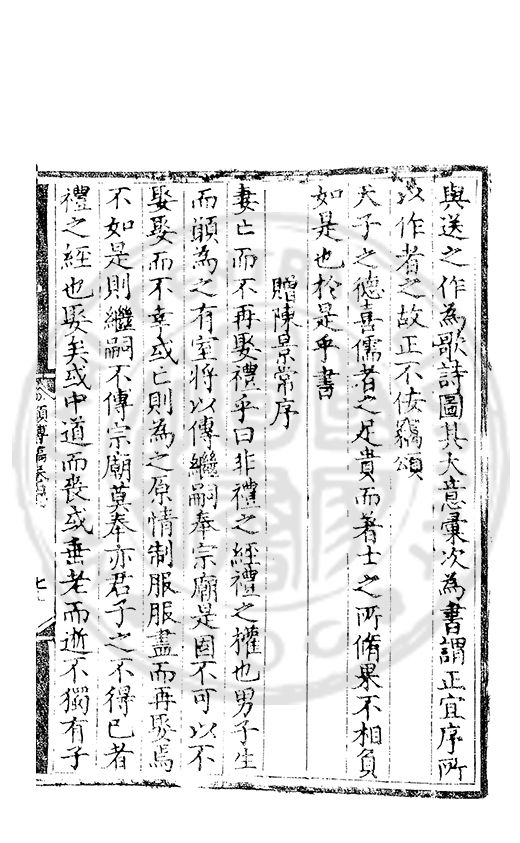 與送之作為歌詩圖其大意彙次為書謂正宜序所
以作者之故正不佞竊頌
天子之德喜儒者之足貴而著士之所脩果不相負
如是也於是乎書
贈陳景常序
妻亡而不再娶禮乎曰非禮之經禮之權也男子生
而願為之有室將以傳繼嗣奉宗廟是固不可以不
娶娶而不幸或亡則為之原情制服服盡而再娶焉
不如是則繼嗣不傳宗廟莫奉亦君子之不得已者
禮之經也娶矣或中道而喪或垂老而逝不獨有子